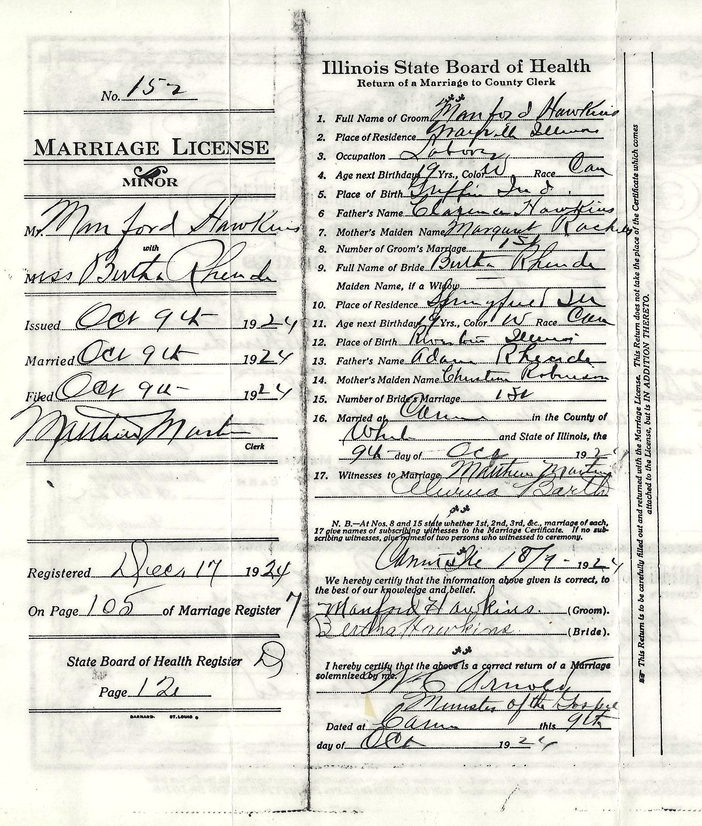 No. 152
MARRIAGE LICENSE
MINOR
Mr. Manford Hawkins
with
Miss Bertha Rheude
Issued Oct 9th 1924
Married Oct 9th 1924
Filed Oct 9th 1924
Matthew Martin
Clerk
Registered Dec 17 1924
On Page 105 of Marriage Register 7
State Board of Health Register D
Page 12
BARNARD ST. LOUIS
Illinois State Board of Health
Return of a Marriage to County Clerk
1. Full Name of Groom Manford Hawkins
2. Place of Residence Grayville Illinois
3. Occupation Labor
4. Age next Birthday 19 Yrs., Color W Race Cau
5. Place of Birth Griffin Ind.
6 Father's Name Clarence Hawkins
7. Mother's Maiden Name Margaret
8. Number of Groom's Marriage 1st
9. Full Name of Bride Bertha Rheude
Maiden Name, if a Widow
10. Place of Residence Springfield Ill
11. Age next Birthday 19 Yrs., Color W Race Cau
12. Place of Birth Illinois
13. Father's Name Adam Rheude
14. Mother's Maiden Name Christina Robinson
15. Number of Bride's Marriage 1st
16. Married at Carmi in the County of
White and State of Illinois, the
9th day of Oct 1924
17. Witnesses to Marriage Matthew Martin
Barth
N. B.—At Nos. 8 and 15 state whether 1st, 2nd, 3rd, &c., marriage of each,
17 give names of subscribing witnesses to the Marriage Certificate. If no sub-
scribing witnesses, give names of two persons who witnessed to ceremony.
Carmi Ills 10/9 - 1924
We hereby certify that the information above given is correct, to
the best of our knowledge and belief.
Manford Hawkins. (Groom).
Bertha Hawkins (Bride).
I hereby certify that the above is a correct return of a Marriage
solemnized by me. Arnold
Minister of the Gospel
Dated at Carmi this 9th
day of Oct 1924
This Return is to be carefully filled out and returned with the Marriage License. This Return does not take the place of the Certificate which comes
attached to the License, but is IN ADDITION THERETO.